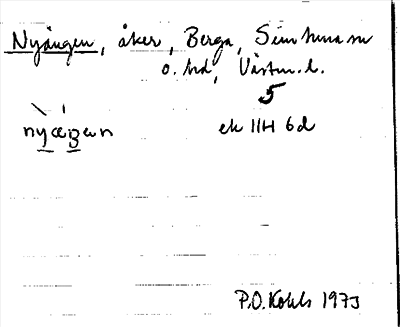 Nyängen, åker, Berga, Simtuna sn
o. hd, Västm. l.
5
nyæŋæn
ek IIH 6d
P.O. Kohls 1973